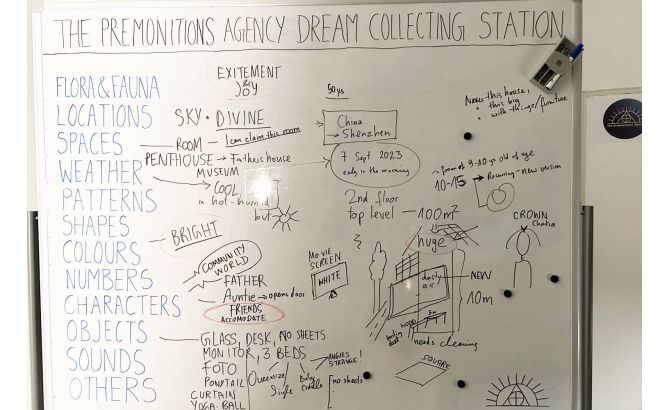 THE PREMONITIONS AGENCY DREAM COLLECTING STATION
FLORA & FAUNA
LOCATIONS
SPACES
WEATHER
PATTERNS
SHAPES
COLOURS
NUMBERS
CHARACTERS
OBJECTS
SOUNDS
OTHERS
EXITEMENT
JOY
SKY · DIVINE
ROOM - I can claim this room
PENTHOUSE → Fathers house
MUSEUM
COOL
in hot-humid
but
BRIGHT
COMMUNITY
WORLD
FATHER
Auntie → opens door
FRIENDS
ACCOMODATE
GLASS, DESK, NO SHEETS
MONITOR, 3 BEDS
FOTO
PONYTAIL
CURTAIN
YOGA-BALL
Queensize/
Single
Baby
Cradle
ANGLES
STRANGE!
no sheets
50 ys
China
→ Shenzhen
7 Sept 2023
early in the morning
2nd floor
top level — 100m²
huge
MOVIE
SCREEN
WHITE
dusty
air
NEW
10m
needs cleaning
SQUARE
this house,
this big
with things/furniture
from 9-10 yrs old of age
10-15 → Recurring - new version
CROWN
Chakra